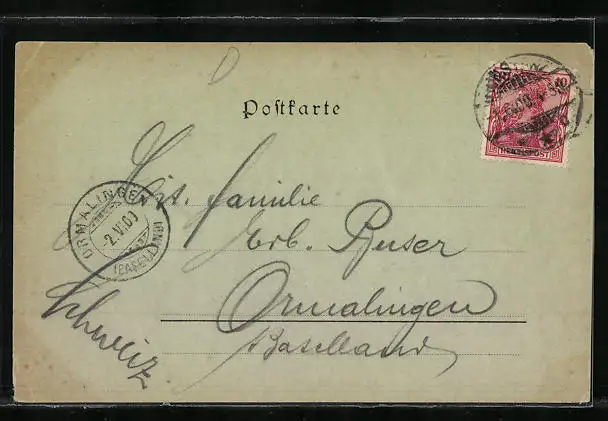 Postkarte
10
REICHSPOST
familie
Erb. Buser
ORMALINGEN
-2.VI.00
(BASELLAND)
Ormalingen
Baselland
Schweiz